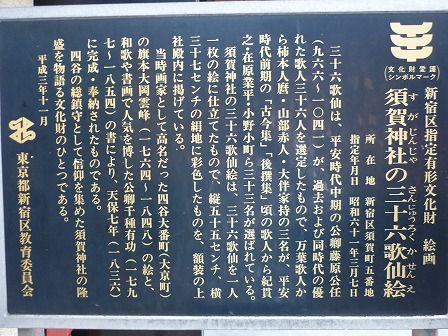 文化財愛護
シンボルマーク
新宿区指定有形文化財　絵画
すがじんじゃ　さんじゅうろっかせんえ
須賀神社の三十六歌仙絵
所在地　新宿区須賀町五番地
指定年月日　昭和六十一年三月七日
三十六歌仙は、平安時代中期の公卿藤原公任
（九六六〜一〇四一）が、過去および同時代の優
れた歌人三十六人を選定したもので、万葉歌人か
ら柿本人麿・山部赤人・大伴家持の三名が、平安
時代前期の「古今集」「後撰集」頃の歌人から紀貫
之・在原業平・小野小町ら三十三名が選ばれている。
須賀神社の三十六歌仙絵は、三十六歌仙を一人
一枚の絵に仕立てたもので、縦五十五センチ、横
三十七センチの絹地に彩色したものを、額装の上
社殿内に掲げている。
当時画家として高名だった四谷大番町（大京町）
の旗本大岡雲峰（一七六四〜一八四八）の絵と、
和歌や書画で人気を博した公卿千種有功（一七九
七〜一八五四）の書により、天保七年（一八三六）
に完成・奉納されたものである。
四谷の総鎮守として信仰を集めた須賀神社の隆
盛を物語る文化財のひとつである。
平成三年十一月
東京都新宿区教育委員会